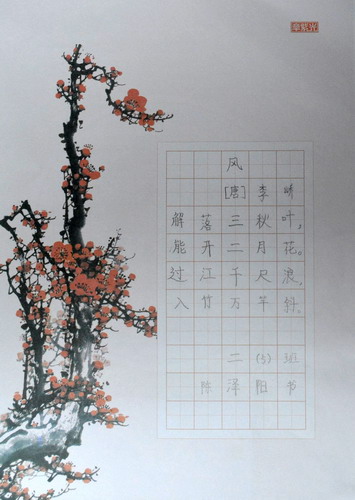 风
[唐] 李峤
解落三秋叶，
能开二月花。
过江千尺浪，
入竹万竿斜。
二(5)班
陈泽阳书